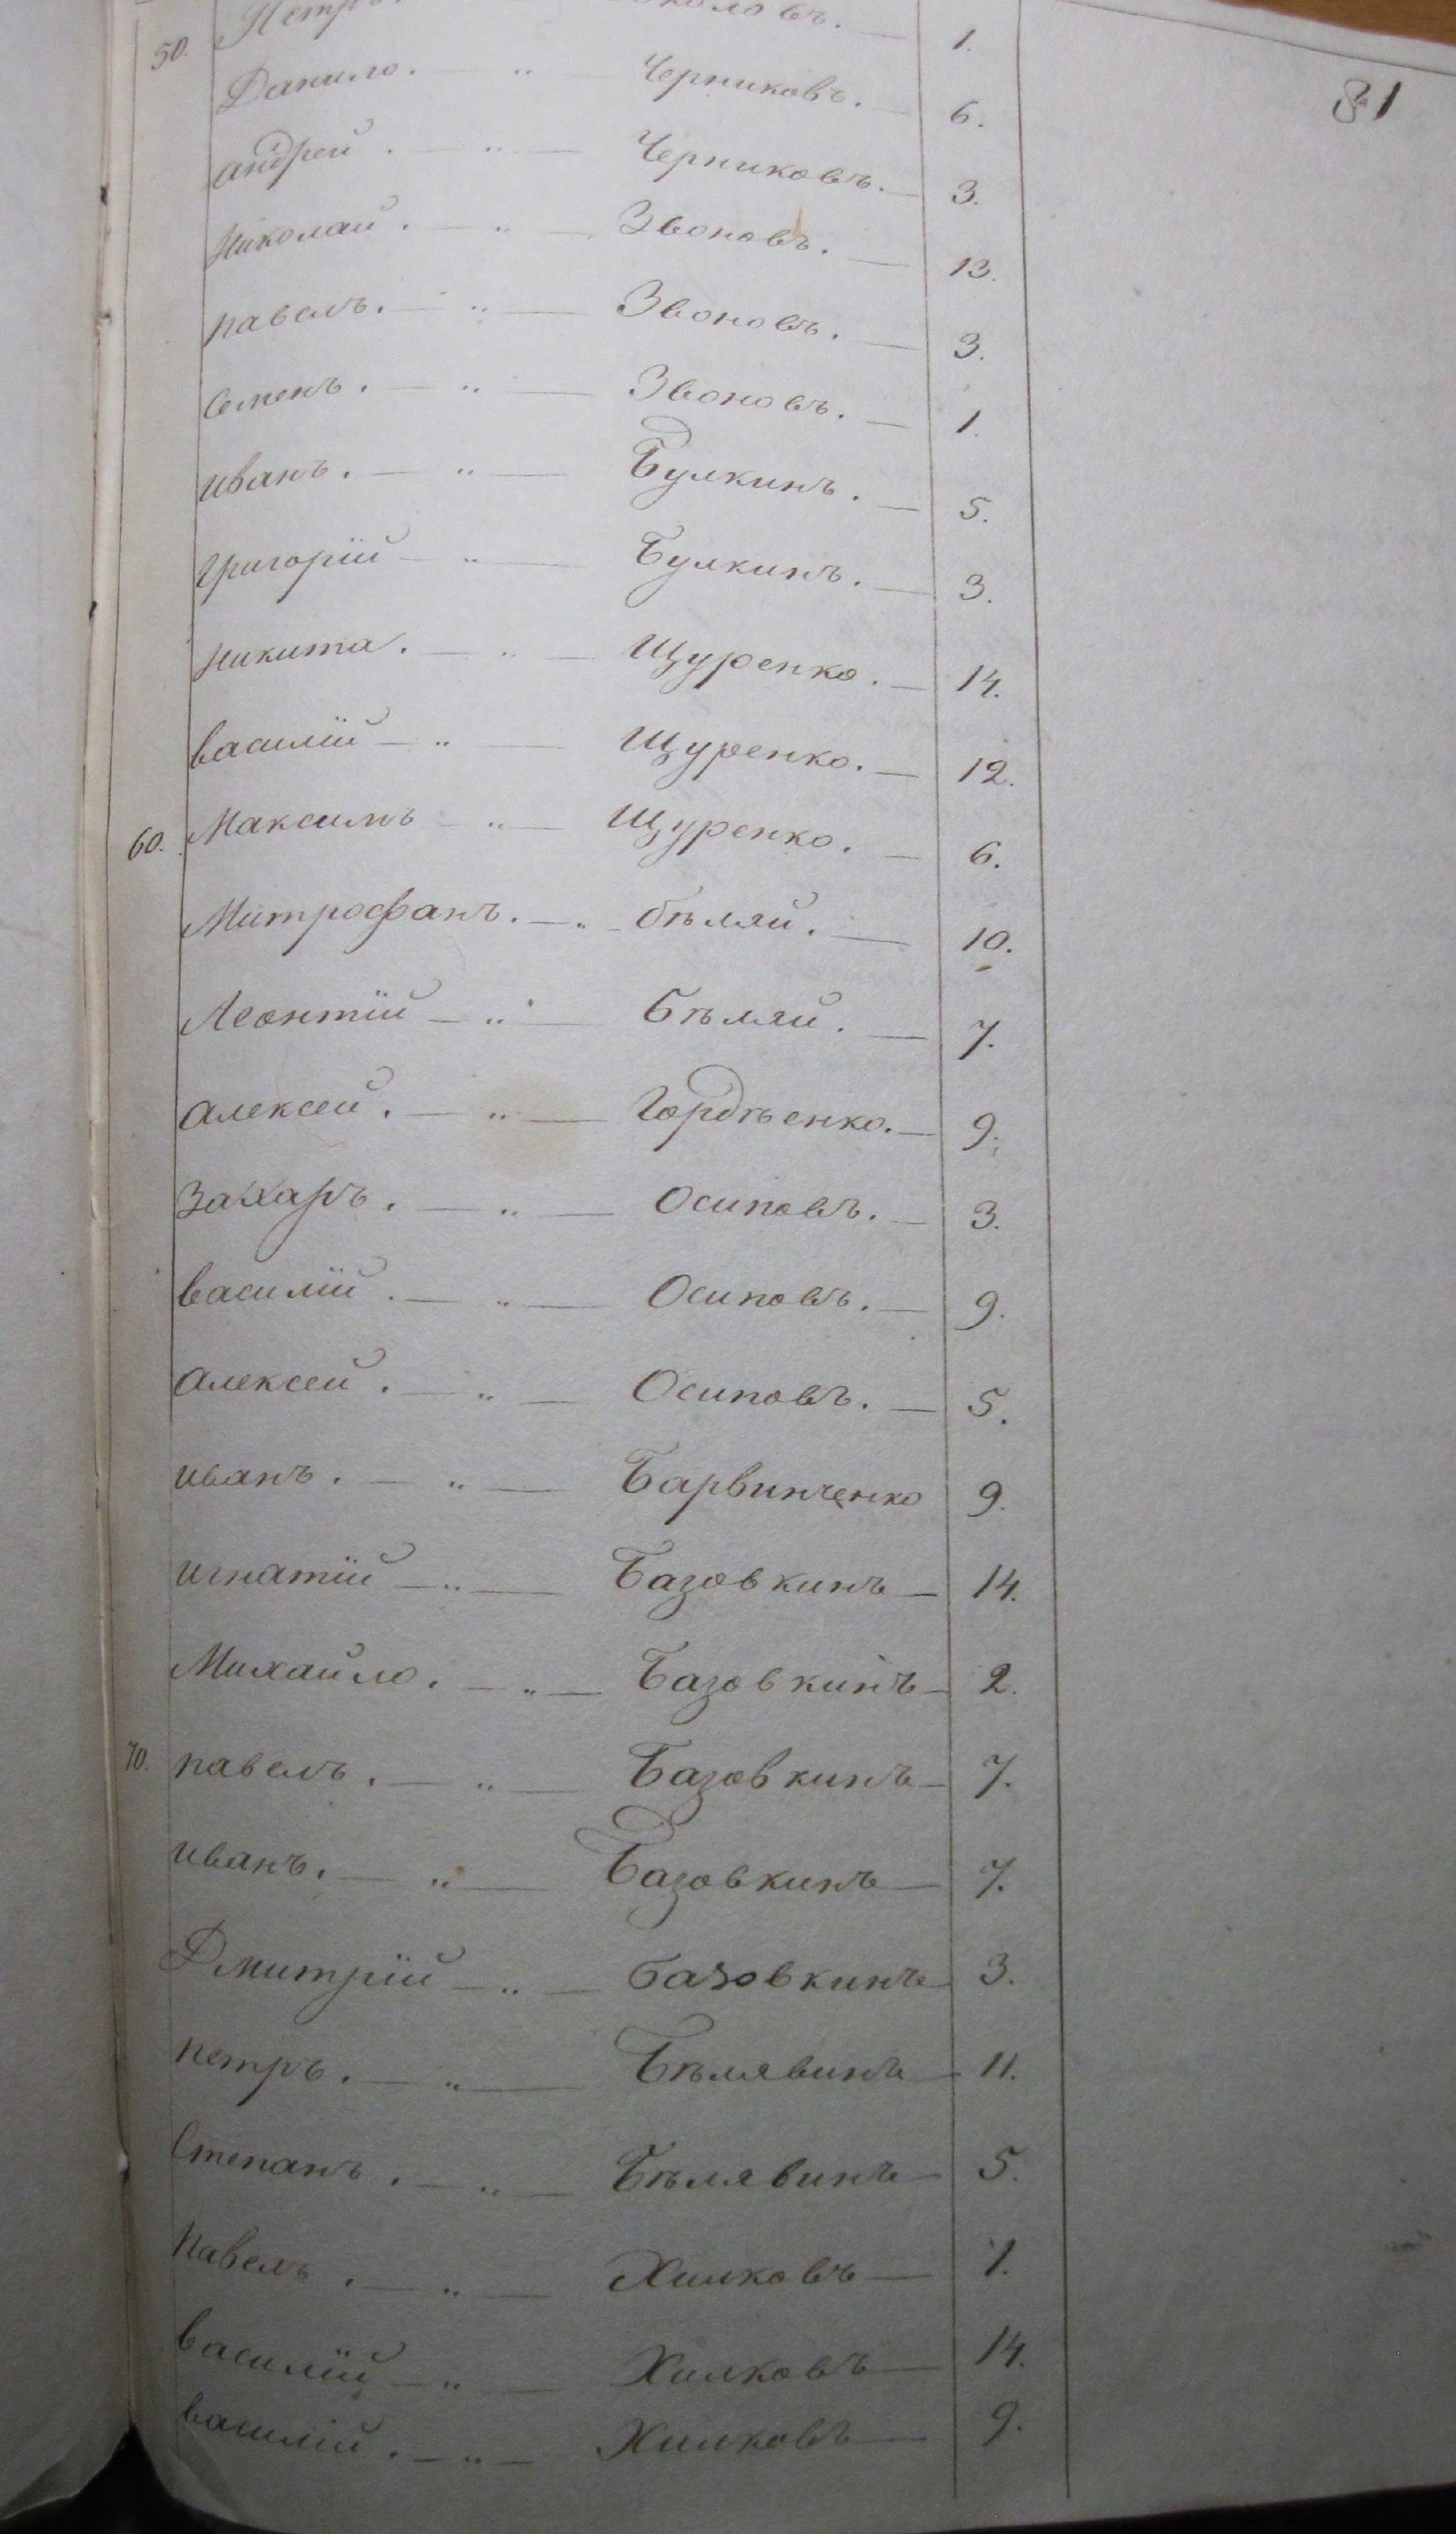 81
50. Петръ. 1.
Данило. — " — Черниковъ. — 6.
андрей. — " — Черниковъ. — 3.
Николай. — " — Звоновъ. — 13.
павелъ. — " — Звоновъ. — 3.
Семенъ. — " — Звоновъ. — 1.
иванъ. — " — Булкинъ. — 5.
григорій — " — Булкинъ. — 3.
никита. — " — Щуренко. — 14.
василій — " — Щуренко. — 12.
60. Максимъ — " — Щуренко. — 6.
Митрофанъ. — " — бѣляй. — 10.
Леонтій — " — Бѣляй. — 7.
алексей. — " — Гордѣенко. — 9.
Захаръ. — " — Осиповъ. — 3.
василій. — " — Осиповъ. — 9.
алексей. — " — Осиповъ. — 5.
иванъ. — " — Барвинченко 9.
игнатій — " — Базовкинъ — 14.
Михайло. — " — Базовкинъ — 2.
70. павелъ. — " — Базовкинъ — 7.
иванъ. — " — Базовкинъ — 7.
Дмитрій — " — базовкинъ 3.
петръ. — " — Бѣлявинъ — 11.
Степанъ. — " — Бѣлявинъ — 5.
павелъ. — " — Хилковъ — 1.
василій — " — Хилковъ — 14.
василій. — " — Хилковъ — 9.